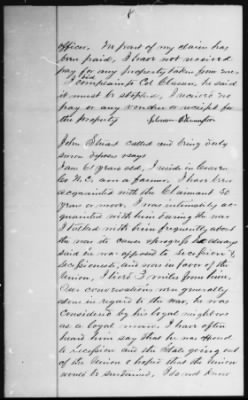 8
officer, No part of my claim has
been paid, I have not received
pay for any property taken from me.
I did complain to Col he said
it must be stopped, I received no
pay or any voucher or receipt for
the property
John Stuart called and being duly
sworn deposes & says
I am 61 years old, I reside in
Co N.C. am a farmer, I have been
acquainted with the Claimant 30
years or more, I was intimately ac-
quainted with him during the war
I talked with him frequently about
the war its cause & progress he always
said he was opposed to secession &
secessionists, and was in favor of the
Union, I lived 3 miles from him,
Our conversations were generally
alone in regard to the war, he was
considered by his loyal neighbors
as a loyal man. I have often
heard him say that he was opposed
to secession and the State going out
of the Union & hoped that the Union
would be sustained, I do not know